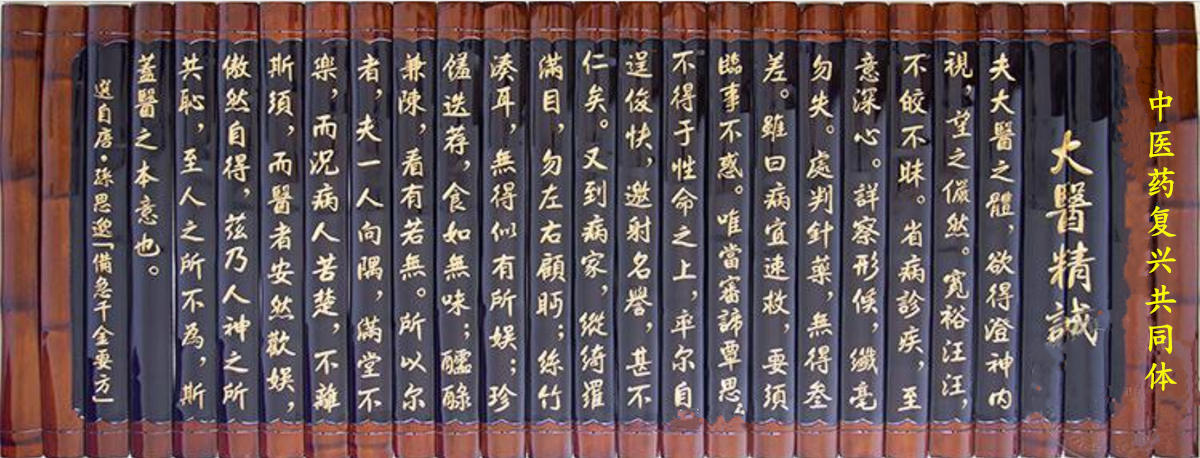 中医药复兴共同体
大醫精誠
夫大醫之體，欲得澄神内
視，望之儼然。寬裕汪汪，
不皎不昧。省病診疾，至
意深心。詳察形候，纖毫
勿失。處判針藥，無得叁
差。雖曰病宜速救，要須
臨事不惑。唯當審諦覃思。
不得于性命之上，率尔自
逞俊快，邀射名譽，甚不
仁矣。又到病家，縱綺羅
滿目，勿左右顧眄；絲竹
湊耳，無得似有所娱；珍
饈迭荐，食如無味；醽醁
兼陳，看有若無。所以尔
者，夫一人向隅，滿堂不
樂，而况病人苦楚，不離
斯須，而醫者安然歡娱，
傲然自得，兹乃人神之所
共恥，至人之所不為，斯
蓋醫之本意也。
選自唐·孫思邈「備急千金要方」